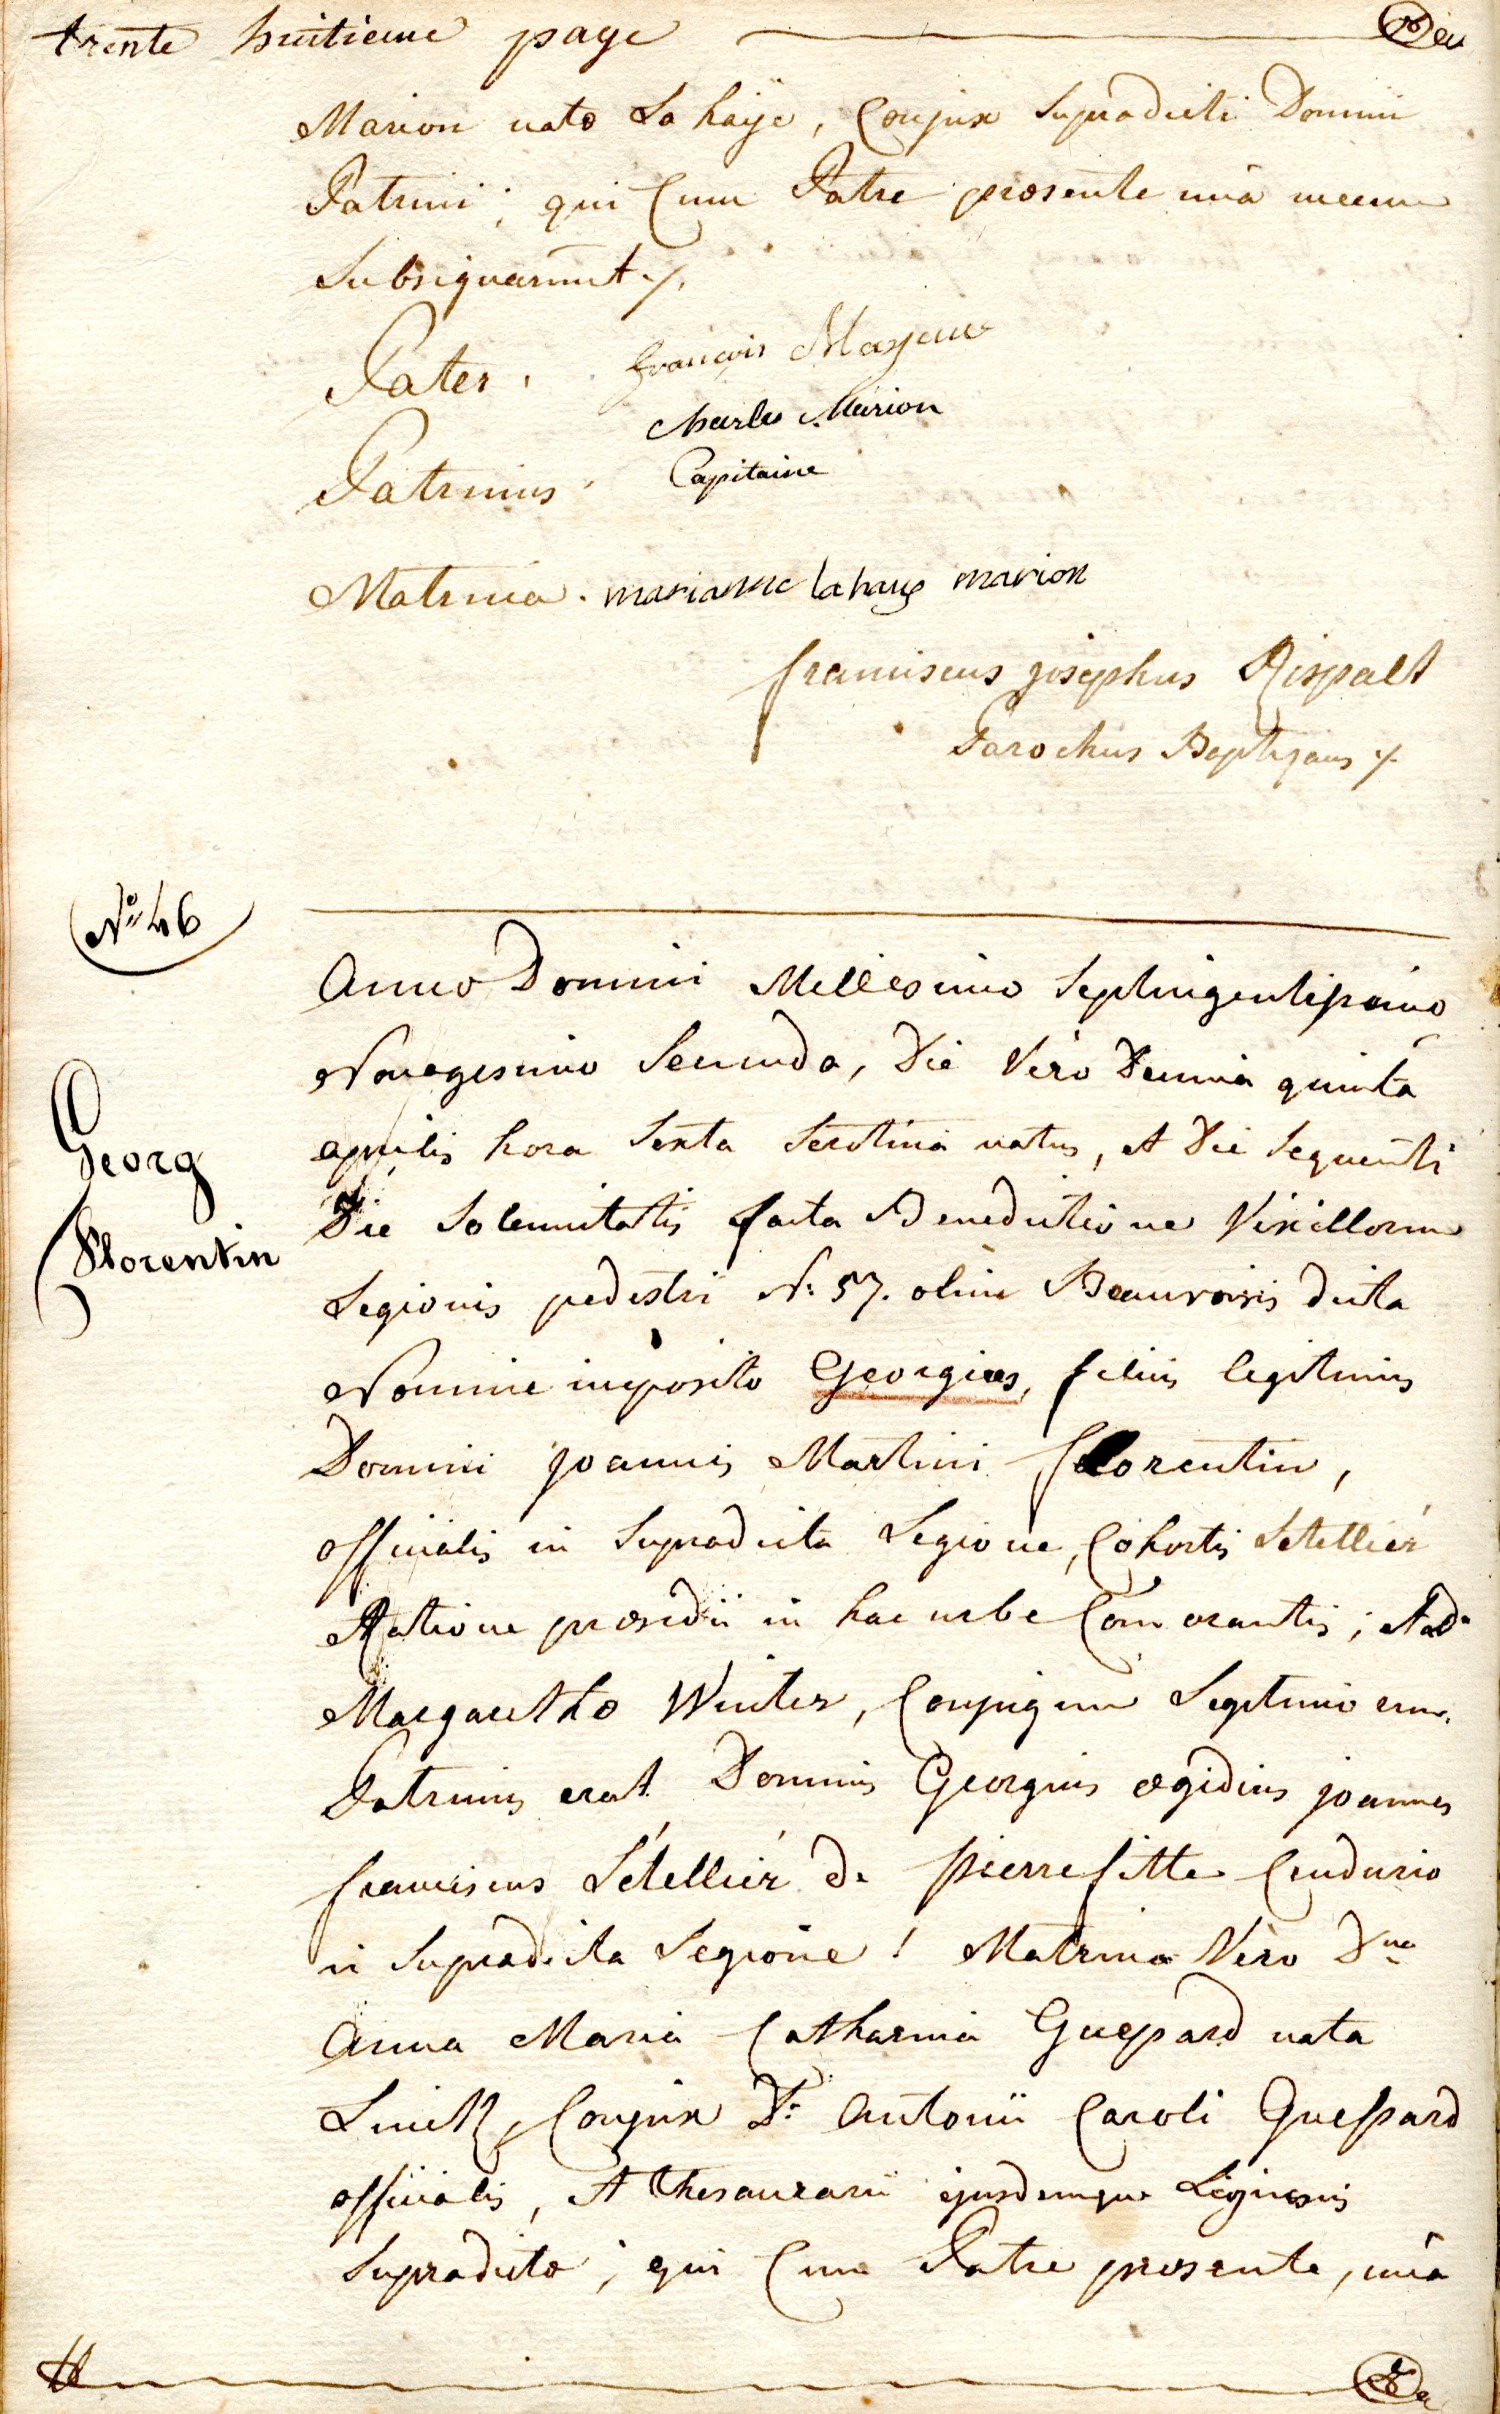 trente huitieme page
Marion natæ La haÿe, Conjux Supradicti Domini
Patrini; qui Cum Patre præsente unà mecum
Subsignarunt ./.
Pater. françois
Charles Marion
Patrinus. Capitaine
Matrina. marianne lahaye marion
franciscus josephus Rispalt
Parochus Baptizans ./.
N° 46
Anno Domini Millesimo Septingentesimo
Nonagesimo Secundo, Die Vero Decima quinta
aprilis hora Sexta Serotina natus, et Die Sequenti
Georg
Die Solemnitatis facta Benedictione Vexillorum
Florentin
Legionis pedestri N: 57. olim Beauvoisis dicta
Nomine imposito Georgius, filius legitimus
Domini joannis Martini florentin,
officialis in Supradicta Legione, Cohortis Letellier
Ratione præsidii in hac urbe Comorantis; et
Margarethæ Winter, Conjugum Legitimorum.
Patrinus erat Dominus Georgius ægidius joannes
franciscus Létellier de pierrefitte Centurio
in Supradicta Legione! Matrina Vero Dna
Anna Maria Catharina Guepard nata
Linck, Conjux Di Antonii Caroli Guespard
officialis, et thesaurarii ejusdemque Legionis
Supradictæ; qui Cum Patre præsente, unà